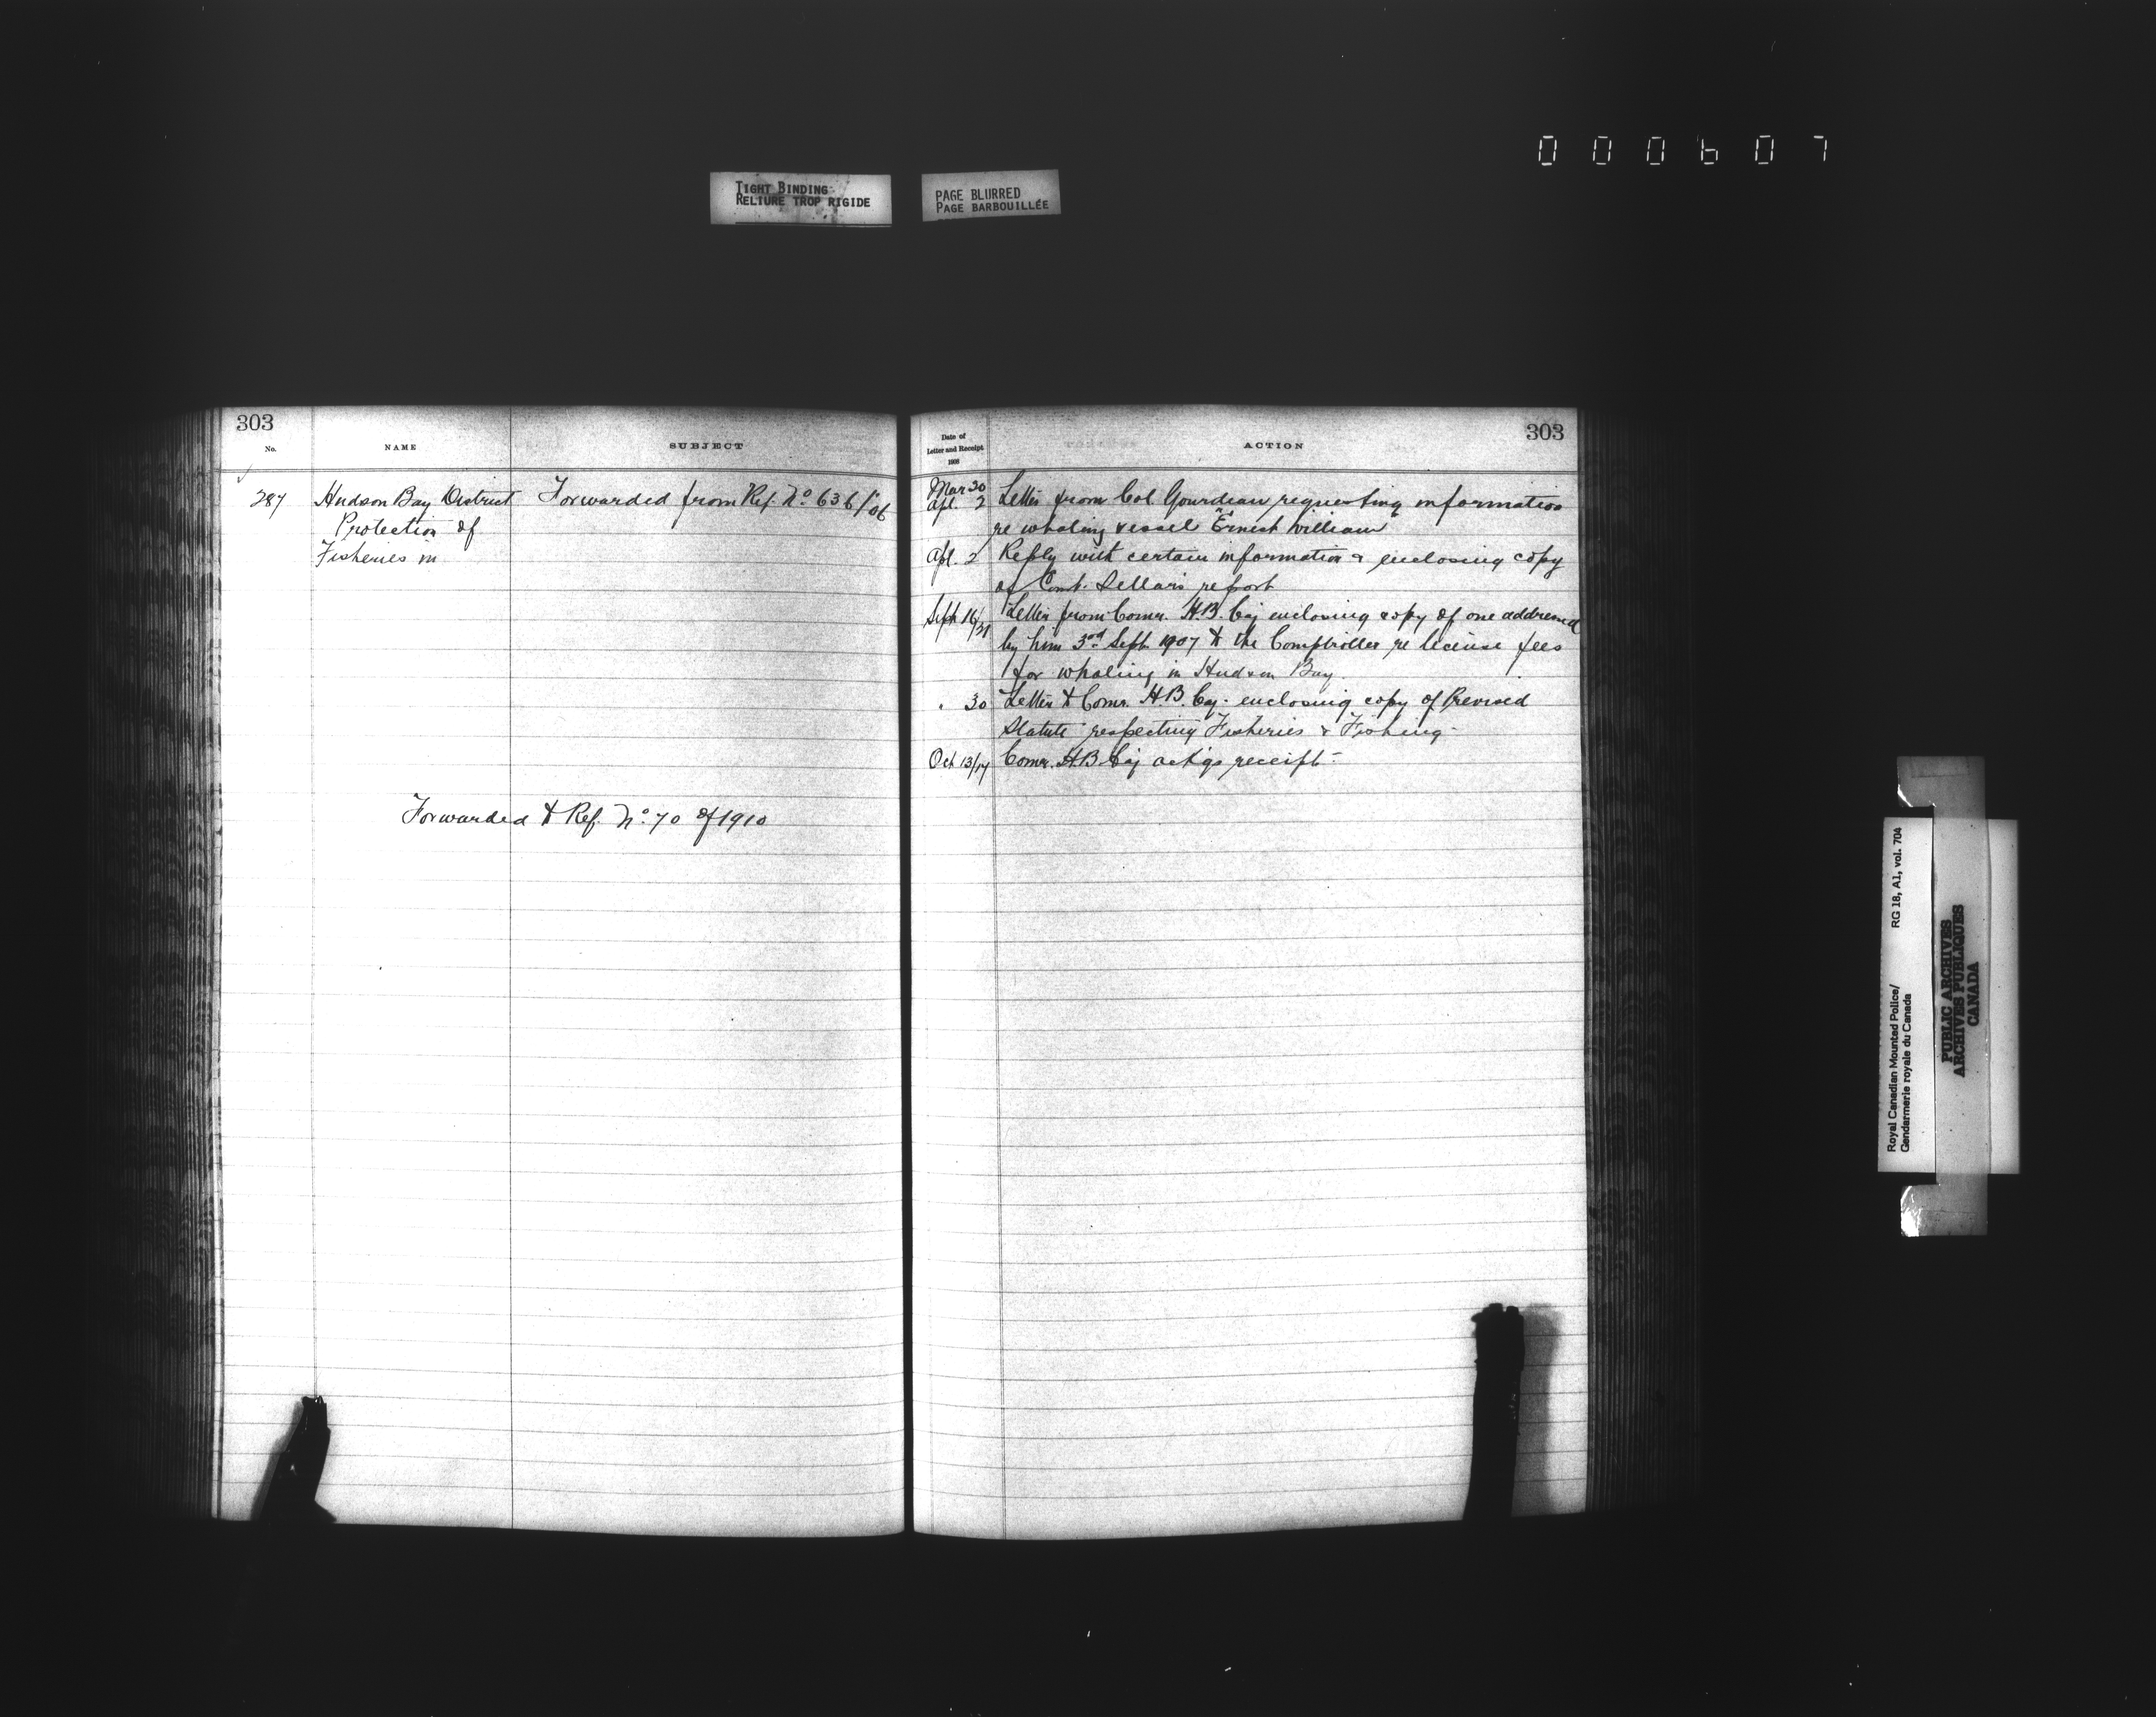 000607
TIGHT BINDING
RELIURE TROP RIGIDE
PAGE BLURRED
PAGE BARBOUILLÉE
303
No.
NAME
SUBJECT
287
Hudson Bay District
Protection of
Fisheries in
Forwarded from Ref. No 636/06
Forwarded to Ref. No. 70 of 1910
303
Date of
Letter and Receipt
1908
ACTION
Mar 30
Apl. 2 Letter from Col. Gourdeau requesting information
re whaling vessel "Ernest William"
Apl. 2 Reply with certain information & enclosing copy
of Const. Sellar's report
Sept 16/21 Letter from Comr. H.B. Coy enclosing copy of one addressed
by him 3rd Sept. 1907 to the Comptroller re license fees
for whaling in Hudson Bay.
" 30 Letter to Comr. H.B. Coy. enclosing copy of Revised
Statute respecting Fisheries & Fishing.
Oct 13/17 Comr. H.B. Coy ack'gs receipt.
Royal Canadian Mounted Police/
Gendarmerie royale du Canada
RG 18, A1, vol. 704
PUBLIC ARCHIVES
ARCHIVES PUBLIQUES
CANADA